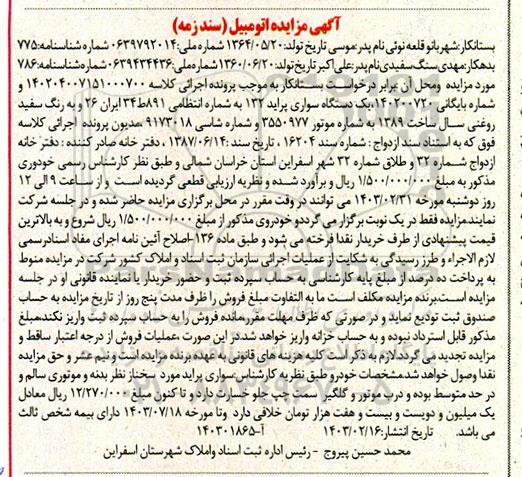 آگهی مزایده اتومبیل (سند زمه)
بستانکار:شهربانو قلعه نوئی نام پدر:موسی تاریخ تولد:۱۳۶۴/۰۵/۲۰ شماره ملی:۰۶۳۹۷۹۲۰۱۴ شماره شناسنامه:۷۷۵
بدهکار:مهدی سنگ سفیدی نام پدر:علی اکبر تاریخ تولد:۱۳۶۰/۰۶/۲۰ شماره ملی:۰۶۳۹۴۳۴۴۳۶ شماره شناسنامه:۷۸۶
مورد مزایده ومحل آن برابر درخواست بستانکار به موجب پرونده اجرائی کلاسه ۱۴۰۲۰۴۰۰۷۱۵۱۰۰۰۷۰۰ و
شماره بایگانی ۱۴۰۲۰۰۷۲۰،یک دستگاه سواری پراید ۱۳۲ به شماره انتظامی ۸۹۱ط۳۴ ایران ۲۶ و به رنگ سفید
روغنی سال ساخت ۱۳۸۹ به شماره موتور ۳۵۵۰۹۷۷ و شماره شاسی ۹۱۷۳۰۱۸ ،مدیون پرونده اجرائی کلاسه
فوق که به استناد سند ازدواج : شماره سند ۱۶۲۰۴ ، تاریخ سند :۱۳۸۷/۰۶/۱۴ ، دفتر خانه صادر کننده : دفتر خانه
ازدواج شماره ۳۲ و طلاق شماره ۳۲ شهر اسفراین استان خراسان شمالی و طبق نظر کارشناس رسمی خودروی
مذکور به مبلغ ۱/۵۰۰/۰۰۰/۰۰۰ ریال و برآورد شده و نظریه ارزیابی قطعی گردیده است و از ساعت ۹ الی ۱۲
روز دوشنبه مورخه ۱۴۰۳/۰۲/۳۱ می توانند در وقت مقرر در محل برگزاری مزایده حاضر شده و در جلسه شرکت
نمایند.مزایده فقط در یک نوبت برگزار می گردد و خودروی مذکور از مبلغ ۱/۵۰۰/۰۰۰/۰۰۰ ریال شروع و به بالاترین
قیمت پیشنهادی از طرف خریدار نقدا فروخته می شود و طبق ماده ۱۳۶-اصلاح آئین نامه اجرای مفاد اسناد رسمی
لازم الاجراء و طرز رسیدگی به شکایت از عملیات اجرائی سازمان ثبت اسناد و املاک کشور شرکت در مزایده منوط
به پرداخت ده درصد از مبلغ پایه کارشناسی به حساب سپرده ثبت و حضور خریدار یا نماینده قانونی او در جلسه
مزایده است.برنده مزایده مکلف است ما به التفاوت مبلغ فروش را ظرف مدت پنج روز از تاریخ مزایده به حساب
صندوق ثبت تودیع نماید و در صورتی که ظرف مهلت مقرر،مانده فروش را به حساب سپرده ثبت واریز نکند،مبلغ
مذکور قابل استرداد نبوده و به حساب خزانه واریز خواهد شد.در این صورت ،عملیات فروش از درجه اعتبار ساقط و
مزایده تجدید می گردد.لازم به ذکر است کلیه هزینه های قانونی به عهده برنده مزایده است و نیم عشر و حق مزایده
نقدا وصول خواهد شد.مشخصات خودرو طبق نظر به کارشناس:سواری پراید مورد سخنار نظر بدنه و موتوری سالم و
در حد متوسط بوده و درب موتور و گلگیر سمت چپ جلو خسارت دارد و تا کنون مبلغ ۱۲/۲۷۰/۰۰۰ ریال معادل
یک میلیون و دویست و بیست و هفت هزار تومان خلافی دارد وتا مورخه ۱۴۰۳/۰۷/۱۸ دارای بیمه شخص ثالث
می باشد. تاریخ انتشار:۱۴۰۳/۰۲/۱۶ آ-۱۴۰۳۰۱۸۶۵
محمد حسین پیروج - رئیس اداره ثبت اسناد واملاک شهرستان اسفراین